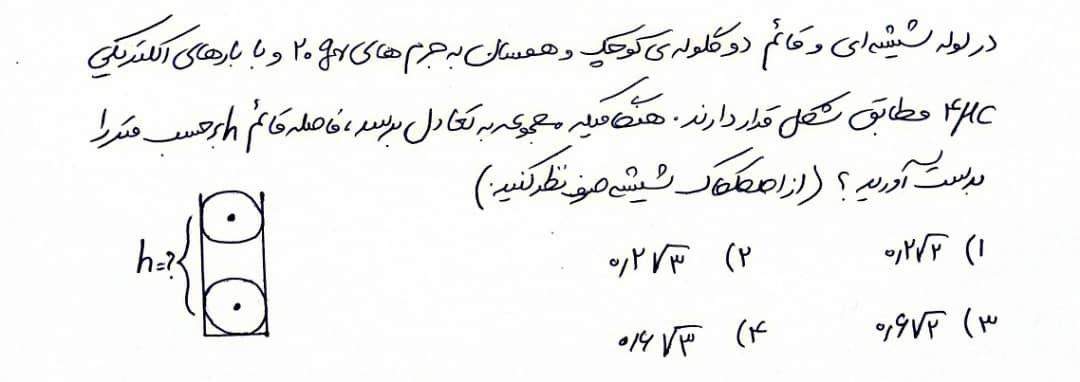 در لوله شیشه‌ای و قائم دو گلوله‌ی کوچک و همسان به جرم های ۲۰ gr و با بارهای الکتریکی
۴μC مطابق شکل قرار دارند. هنگامیکه مجموعه به تعادل برسد، فاصله قائم h برحسب متر را
بدست آورید؟ (از اصطکاک شیشه صرف نظر کنید.)
۱) ۰٫۲√۲ ۲) ۰٫۲√۳
۳) ۰٫۶√۲ ۴) ۰٫۶√۳
h=?